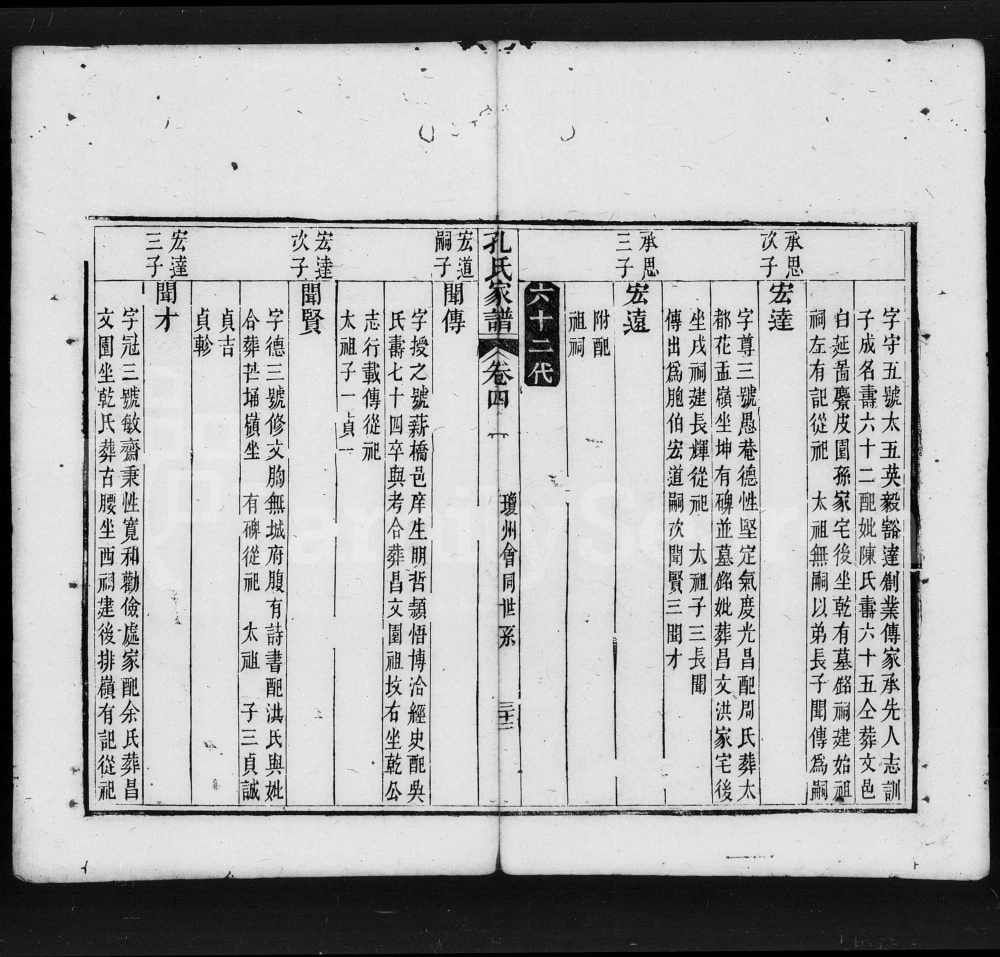 字守五號太五英毅豁達創業傳家承先人志訓
子成名壽六十二配妣陳氏壽六十五仝葬文邑
白延畨麖皮園孫家宅後坐乾有墓銘祠建始祖
祠左有記從祀 太祖無嗣以弟長子聞傳為嗣
承思
次子
宏達
字尊三號愚菴德性堅定氣度光昌配周氏葬太
都花盂嶺坐坤有碑並墓銘妣葬昌文洪家宅後
坐戌祠建長輝從祀 太祖子三長聞
傳出爲胞伯宏道嗣次聞賢三聞才
承思
三子
宏遠
附配
祖祠
六十二代
孔氏家譜
卷四
瓊州會同世系
三十三
宏道
嗣子
聞傳
字授之號薪橋邑庠生明哲頴悟博洽經史配吳
氏壽七十四卒與考合葬昌文園祖坟右坐乾公
志行載傳從祀
太祖子一貞一
宏達
次子
聞賢
字德三號修文胸無城府腹有詩書配洪氏與妣
合葬芒埇嶺坐 有碑從祀 太祖 子三貞誠
貞吉
貞軫
宏達
三子
聞才
字冠三號敏齋秉性寬和勤儉處家配余氏葬昌
文園坐乾氏葬古腰坐酉祠建後排嶺有記從祀